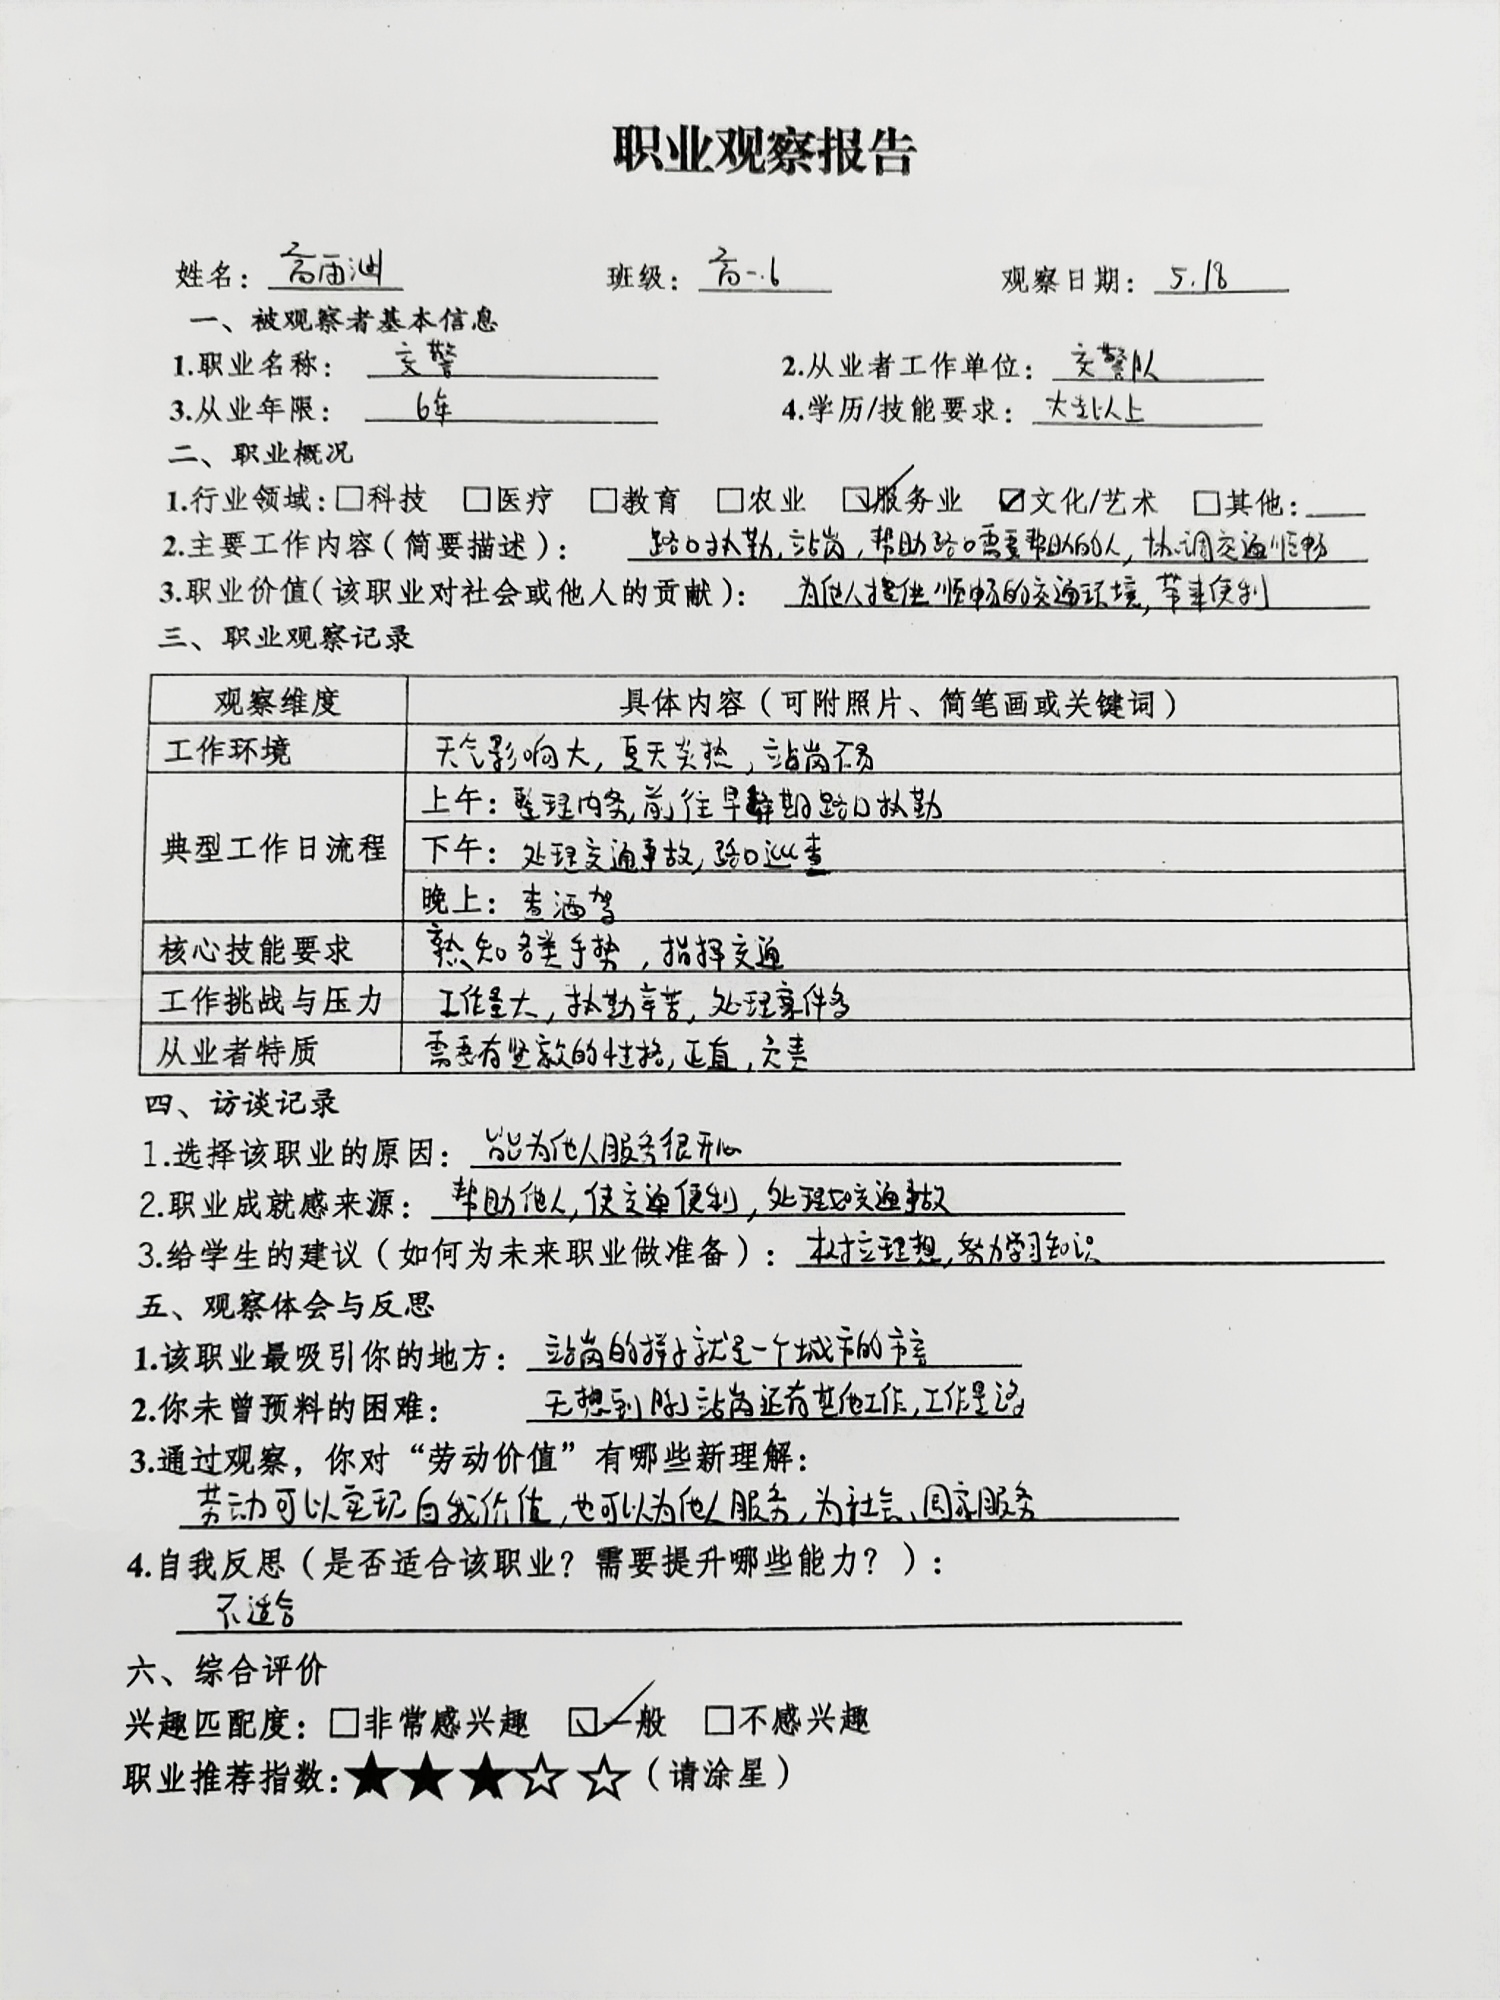 职业观察报告
姓名： 高 班级：高一.6 观察日期：5.18
一、被观察者基本信息
1.职业名称： 交警 2.从业者工作单位：交警队
3.从业年限： 6年 4.学历/技能要求：大专以上
二、职业概况
1.行业领域：□科技 □医疗 □教育 □农业 ☑服务业 ☑文化/艺术 □其他：
2.主要工作内容（简要描述）： 路口执勤，站岗，帮助路口需要帮助的人，协调交通顺畅
3.职业价值（该职业对社会或他人的贡献）： 为他人提供顺畅的交通环境，带来便利
三、职业观察记录
观察维度 具体内容（可附照片、简笔画或关键词）
工作环境 天气影响大，夏天炎热，站岗不易
典型工作日流程 上午：整理内务，前往早 期路口执勤
下午：处理交通事故，路口巡查
晚上：查酒驾
核心技能要求 熟知各类手势，指挥交通
工作挑战与压力 工作量大，执勤辛苦，处理案件多
从业者特质 需要有坚 的性格，正直，负责
四、访谈记录
1.选择该职业的原因： 能为他人服务很开心
2.职业成就感来源： 帮助他人，使交通便利，处理好交通事故
3.给学生的建议（如何为未来职业做准备）： 树立理想，努力学习知识
五、观察体会与反思
1.该职业最吸引你的地方： 站岗的样子就是一个城市的
2.你未曾预料的困难： 无想到 站岗还有其他工作，工作量
3.通过观察，你对“劳动价值”有哪些新理解：
劳动可以实现自我价值，也可以为他人服务，为社会、国家服务
4.自我反思（是否适合该职业？需要提升哪些能力？）：
不适合
六、综合评价
兴趣匹配度：□非常感兴趣 ☑一般 □不感兴趣
职业推荐指数：★★★☆☆（请涂星）